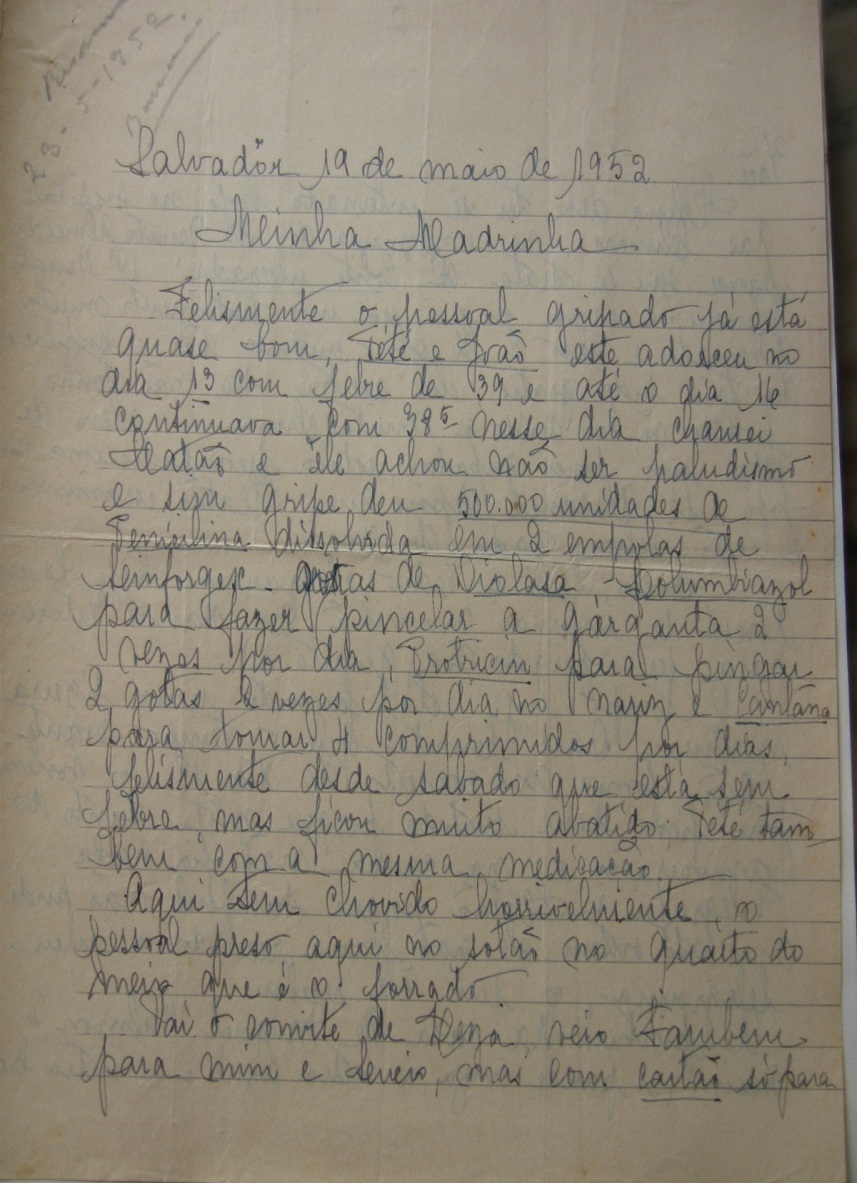 23-5-1952
Salvador 19 de maio de 1952
Meinha Madrinha
Felismente o pessoal gripado já está
quase bom, Teté e João este adoeceu no
dia 13 com febre de 39 e até o dia 16
continuava com 38 5 nesse dia chamei
Matão e êle achou não ser paludismo
e sim gripe deu 500.000 unidades de
Penicilina dissolvida em 2 empolas de
gotas de Columbiazol
para fazer pincelar a garganta 2
vezes por dia, Protricin para pingar
2 gotas 2 vezes por dia no nariz e
para tomar 4 comprimidos por dias,
felismente desde sabado que está sem
febre, mas ficou muito abatido; Teté tam-
bem com a mesma medicação.
Aqui tem chovido horrivelmente, o
pessoal preso aqui no sotão no quarto do
meio que é o forrado.
Vai o convite de veio tambem
para mim e mas com cartão só para